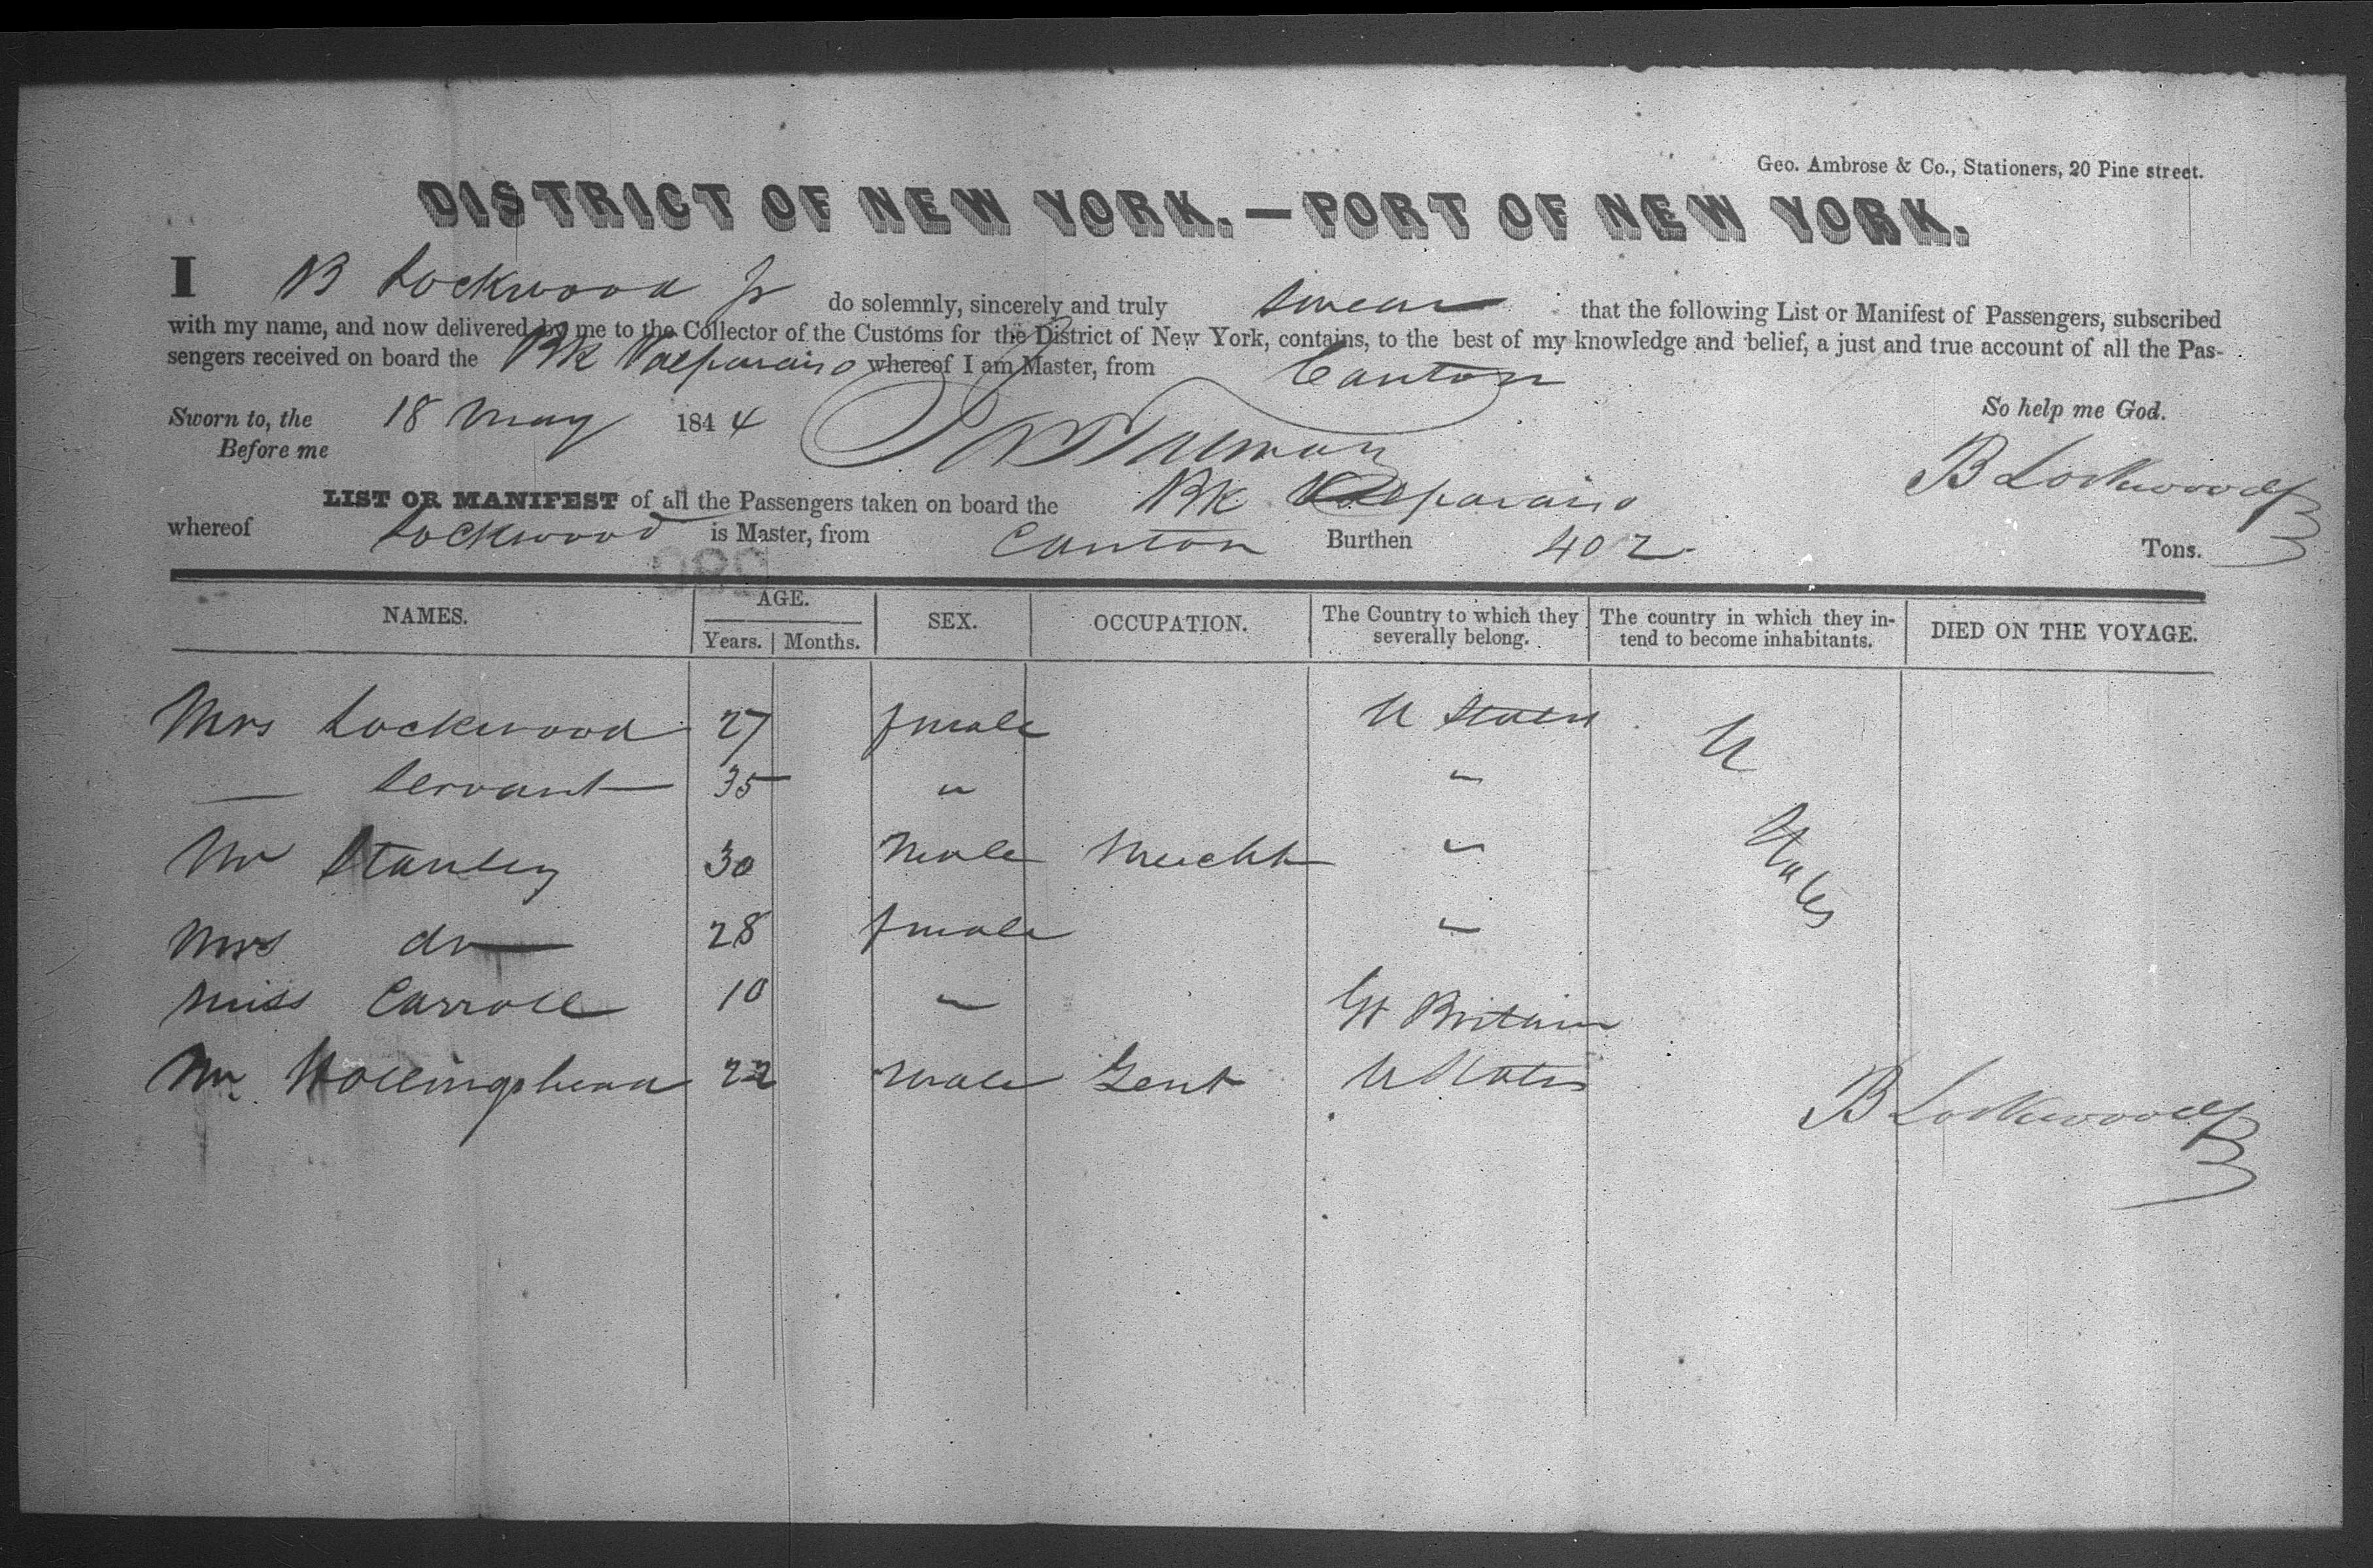 Geo. Ambrose & Co., Stationers, 20 Pine street.
DISTRICT OF NEW YORK.—PORT OF NEW YORK.
I B Lockwood Jr do solemnly, sincerely and truly swear that the following List or Manifest of Passengers, subscribed
with my name, and now delivered by me to the Collector of the Customs for the District of New York, contains, to the best of my knowledge and belief, a just and true account of all the Pas-
sengers received on board the Bk Valparaiso whereof I am Master, from Canton
Sworn to, the 18 May 1844 So help me God.
Before me B Lockwood Jr
LIST OR MANIFEST of all the Passengers taken on board the Bk Valparaiso
whereof Lockwood is Master, from Canton Burthen 402 Tons.
NAMES. AGE. Years. Months. SEX. OCCUPATION. The Country to which they severally belong. The country in which they in-tend to become inhabitants. DIED ON THE VOYAGE.
Mrs Lockwood 27 female U States U
— Servant 35 " "
Mr Stanley 30 Male Mercht " States
Mrs do 28 female "
Miss Carroll 10 " Gt Britain
Mr Hollingshead 22 male Gent U States
B Lockwood Jr